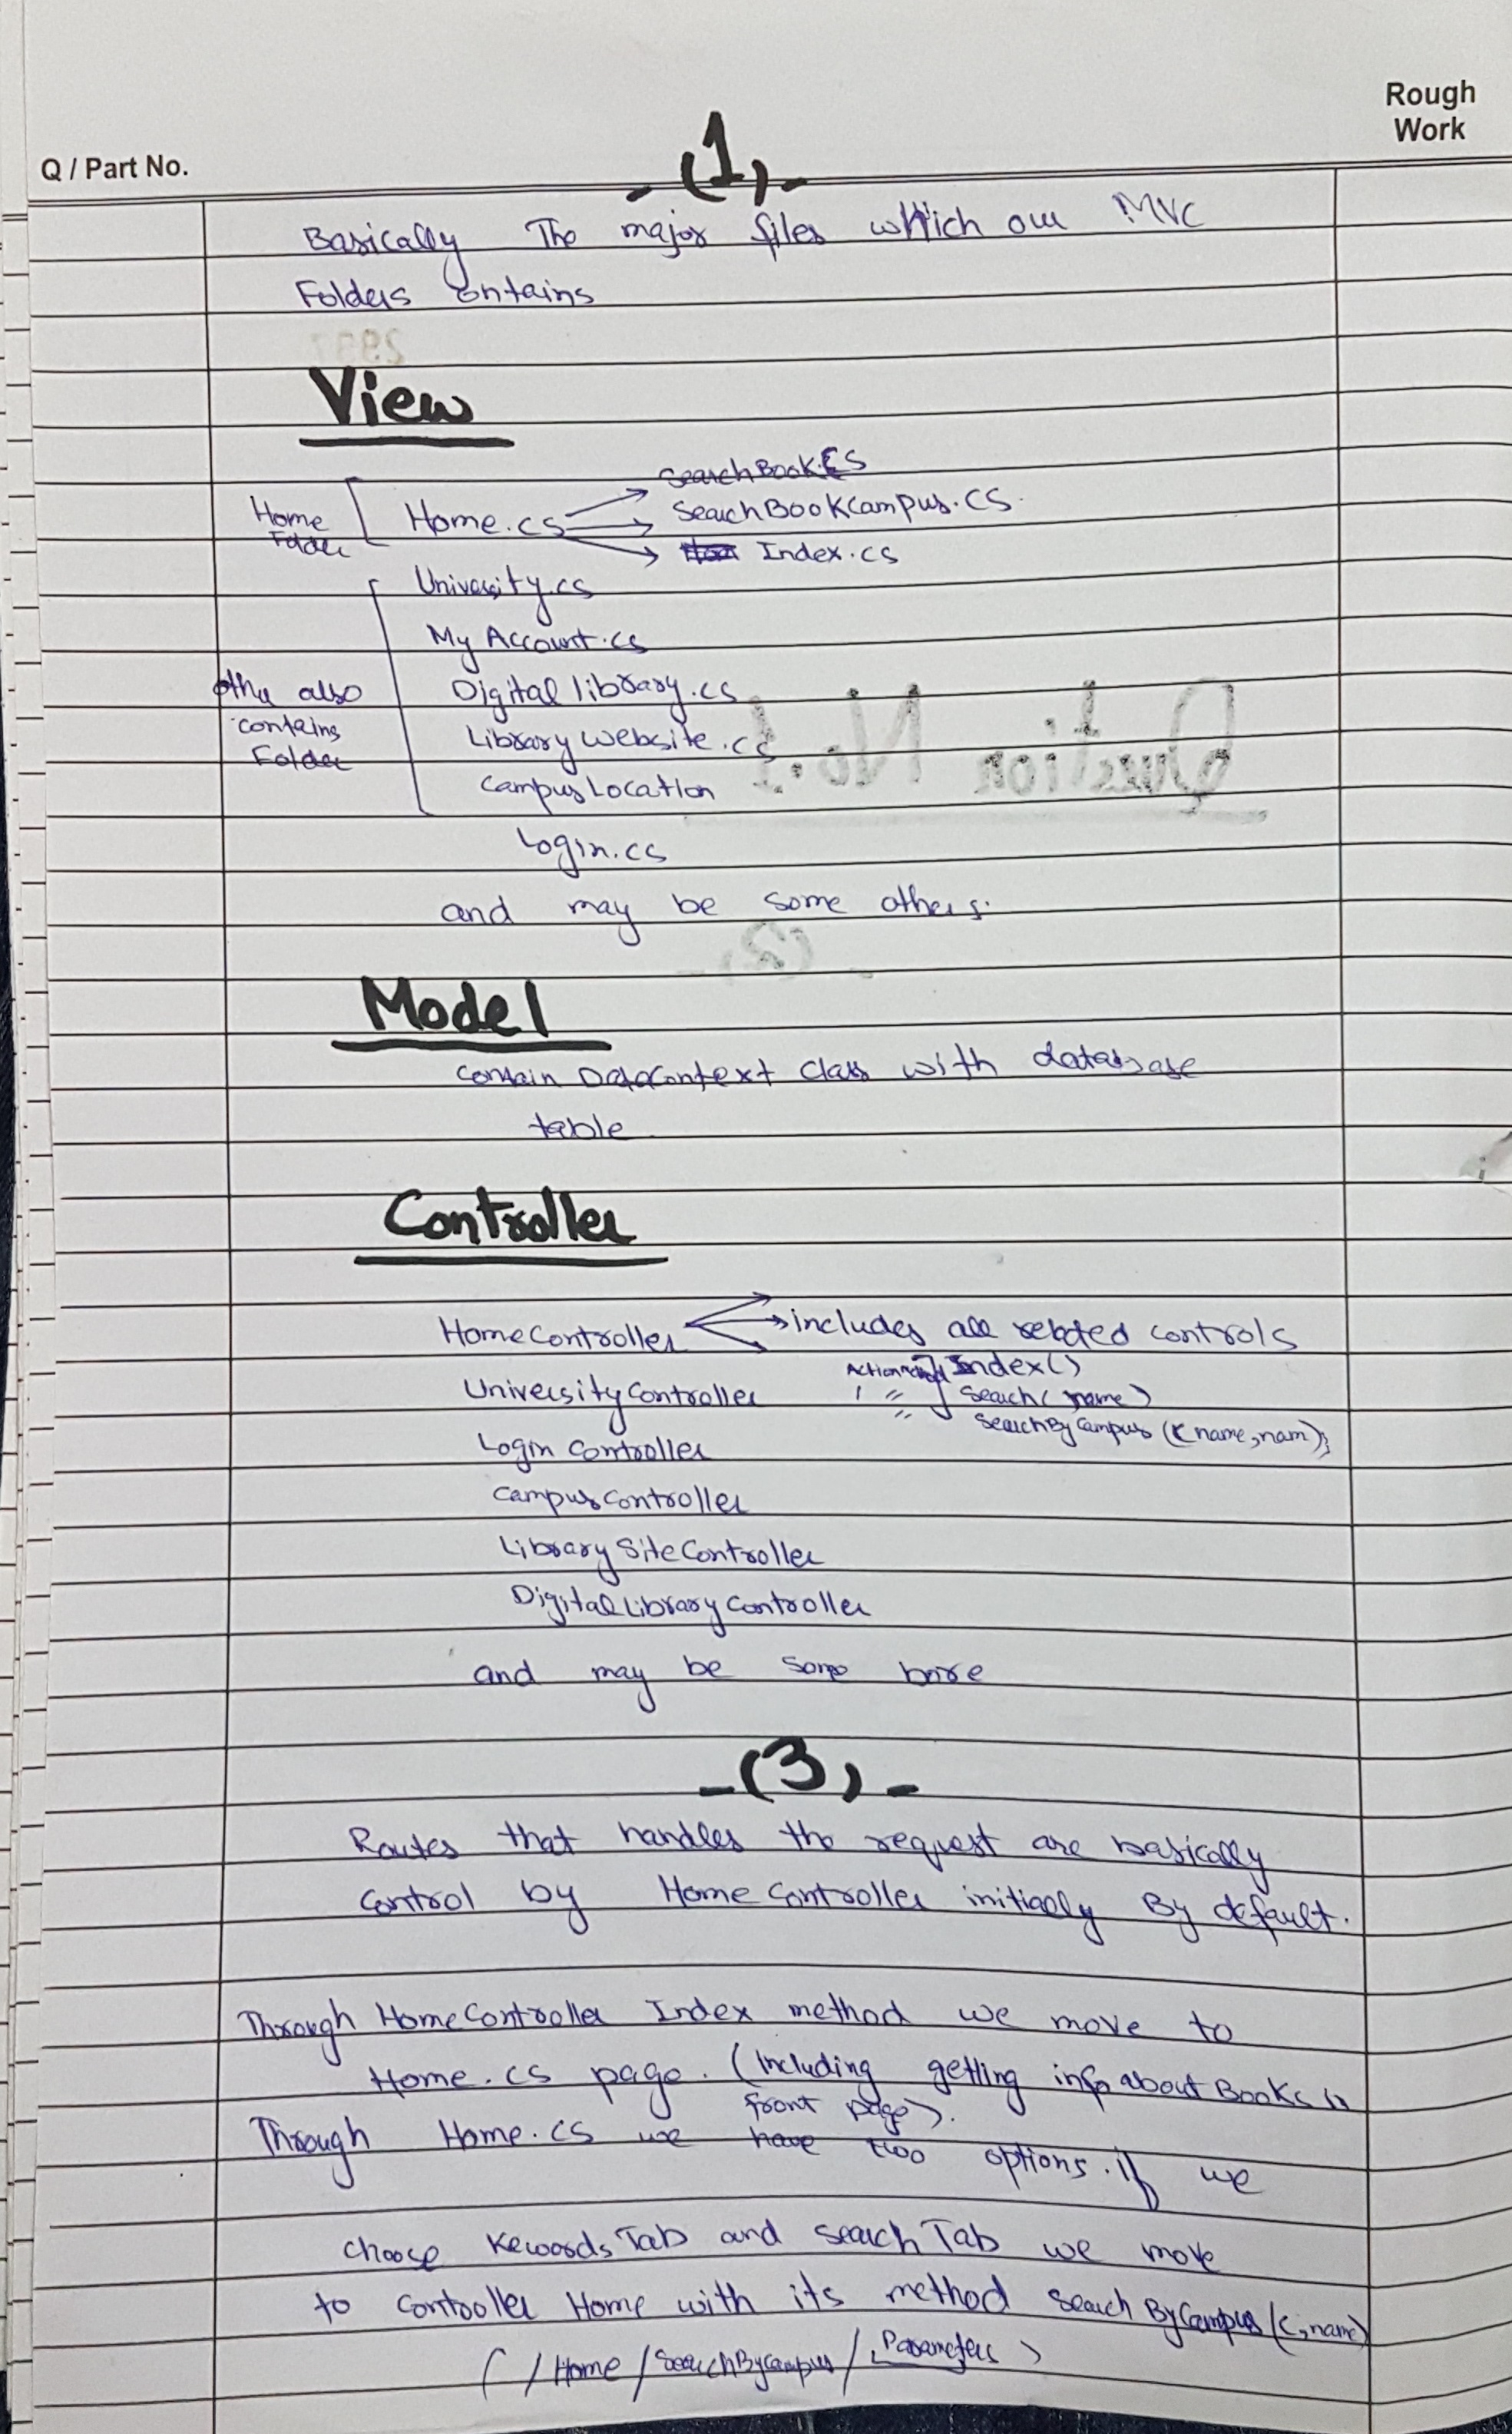 Rough
Work
Q / Part No.
-(1)-
Basically The major files which our MVC
Folders contains
View
SearchBook.CS
Home
Folder
Home.cs
SearchBookCampus.CS
Index.cs
University.cs
My Account.cs
othe also
contains
Folder
Digital library.cs
Library website.cs
Campus Location
Login.cs
and may be some others.
Model
contain DataContext class with database
table
Controller
HomeController includes all related controls
UniversityController
Index()
Search(name)
SearchByCampus (C name, nam);
Login Controller
Campus Controller
Library Site Controller
Digital Library Controller
and may be some
-(3)-
Routes that handles the request are basically
control by Home Controller initially By default.
Through HomeController Index method we move to
Home.cs page. (Including getting info about Books in
front page).
Through Home.cs we have two options. if we
choose Kewords Tab and search Tab we move
to controller Home with its method Search ByCampus (C, name)
( / Home / SearchByCampus / Parameters )
Question No.1
(2)